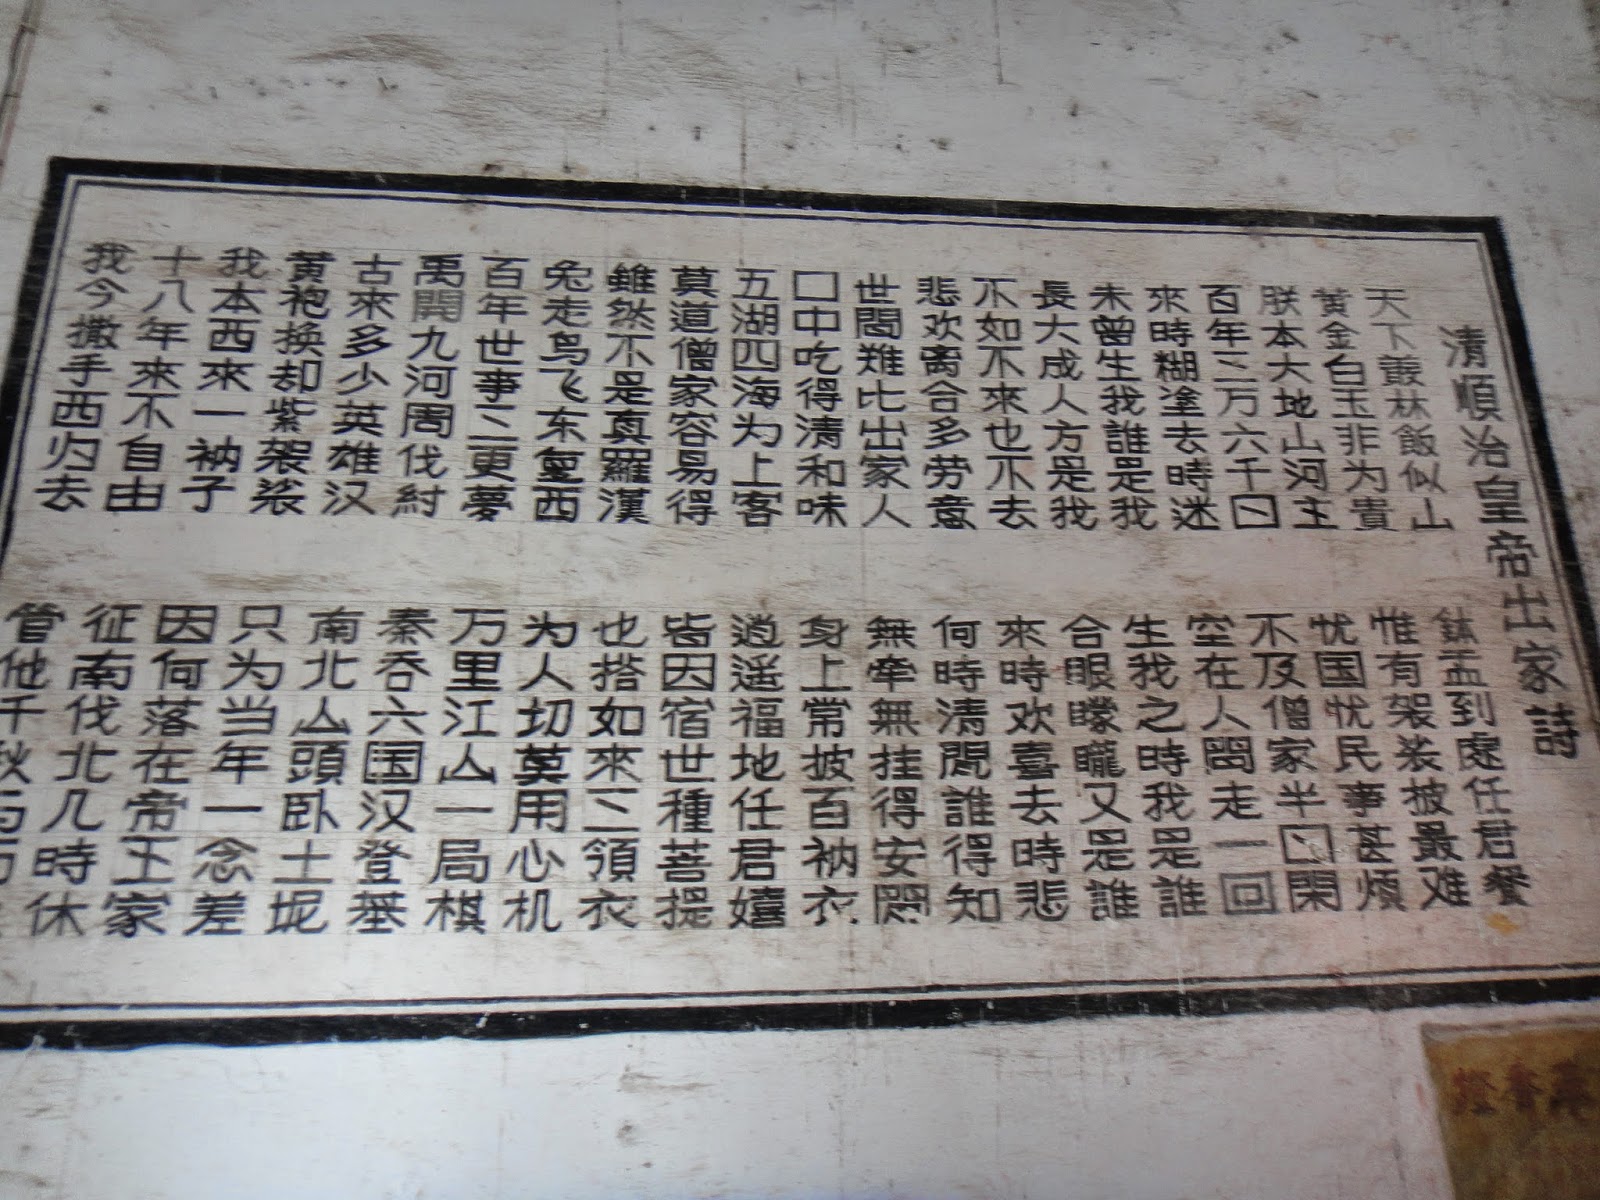 清順治皇帝出家詩
天下叢林飯似山
鉢盂到處任君餐
黄金白玉非为貴
惟有袈裟披最难
朕本大地山河主
忧国忧民事甚煩
百年三万六千日
不及僧家半日閑
來時糊塗去時迷
空在人間走一回
未曾生我誰是我
生我之時我是誰
長大成人方是我
合眼矇矓又是誰
不如不來也不去
來時欢喜去時悲
悲欢离合多劳意
何時清閒誰得知
世間難比出家人
無牽無挂得安閒
口中吃得清和味
身上常披百衲衣
五湖四海为上客
逍遥福地任君嬉
莫道僧家容易得
皆因宿世種菩提
雖然不是真羅漢
也搭如來三領衣
兔走鸟飞东西
为人切莫用心机
百年世事三更夢
万里江山一局棋
禹開九河周伐紂
秦吞六国汉登基
古來多少英雄汉
南北山頭卧土坭
黄袍换却紫袈裟
只为当年一念差
我本西來一衲子
因何落在帝王家
十八年來不自由
征南伐北几時休
我今撒手西归去
管他千秋与